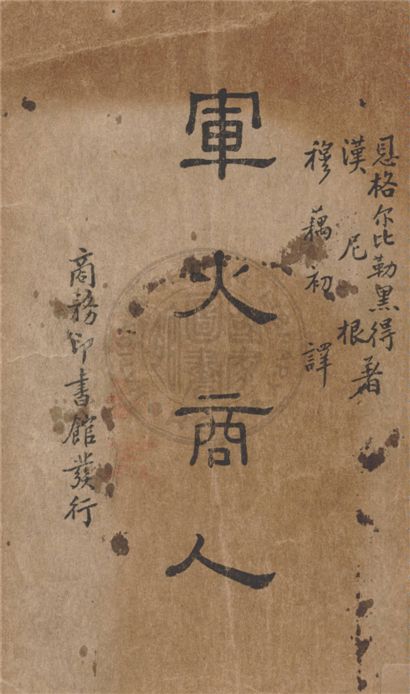 恩格尔比勒黑得
漢尼根 著
穆藕初 譯
軍火商人
商務印書館發行